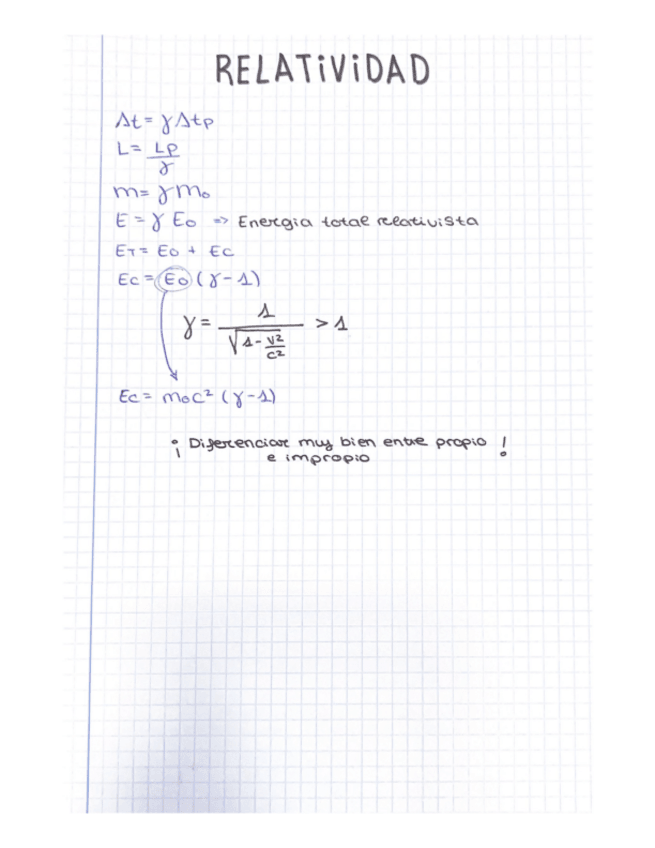 RELATIVIDAD
Δt = γ Δtp
L = Lp/γ
m = γ m₀
E = γ E₀ => Energia total relativista
ET = E₀ + Ec
Ec = E₀ (γ - 1)
γ = 1/√(1 - v²/c²) > 1
Ec = m₀c² (γ - 1)
¡ Diferenciar muy bien entre propio !
e impropio